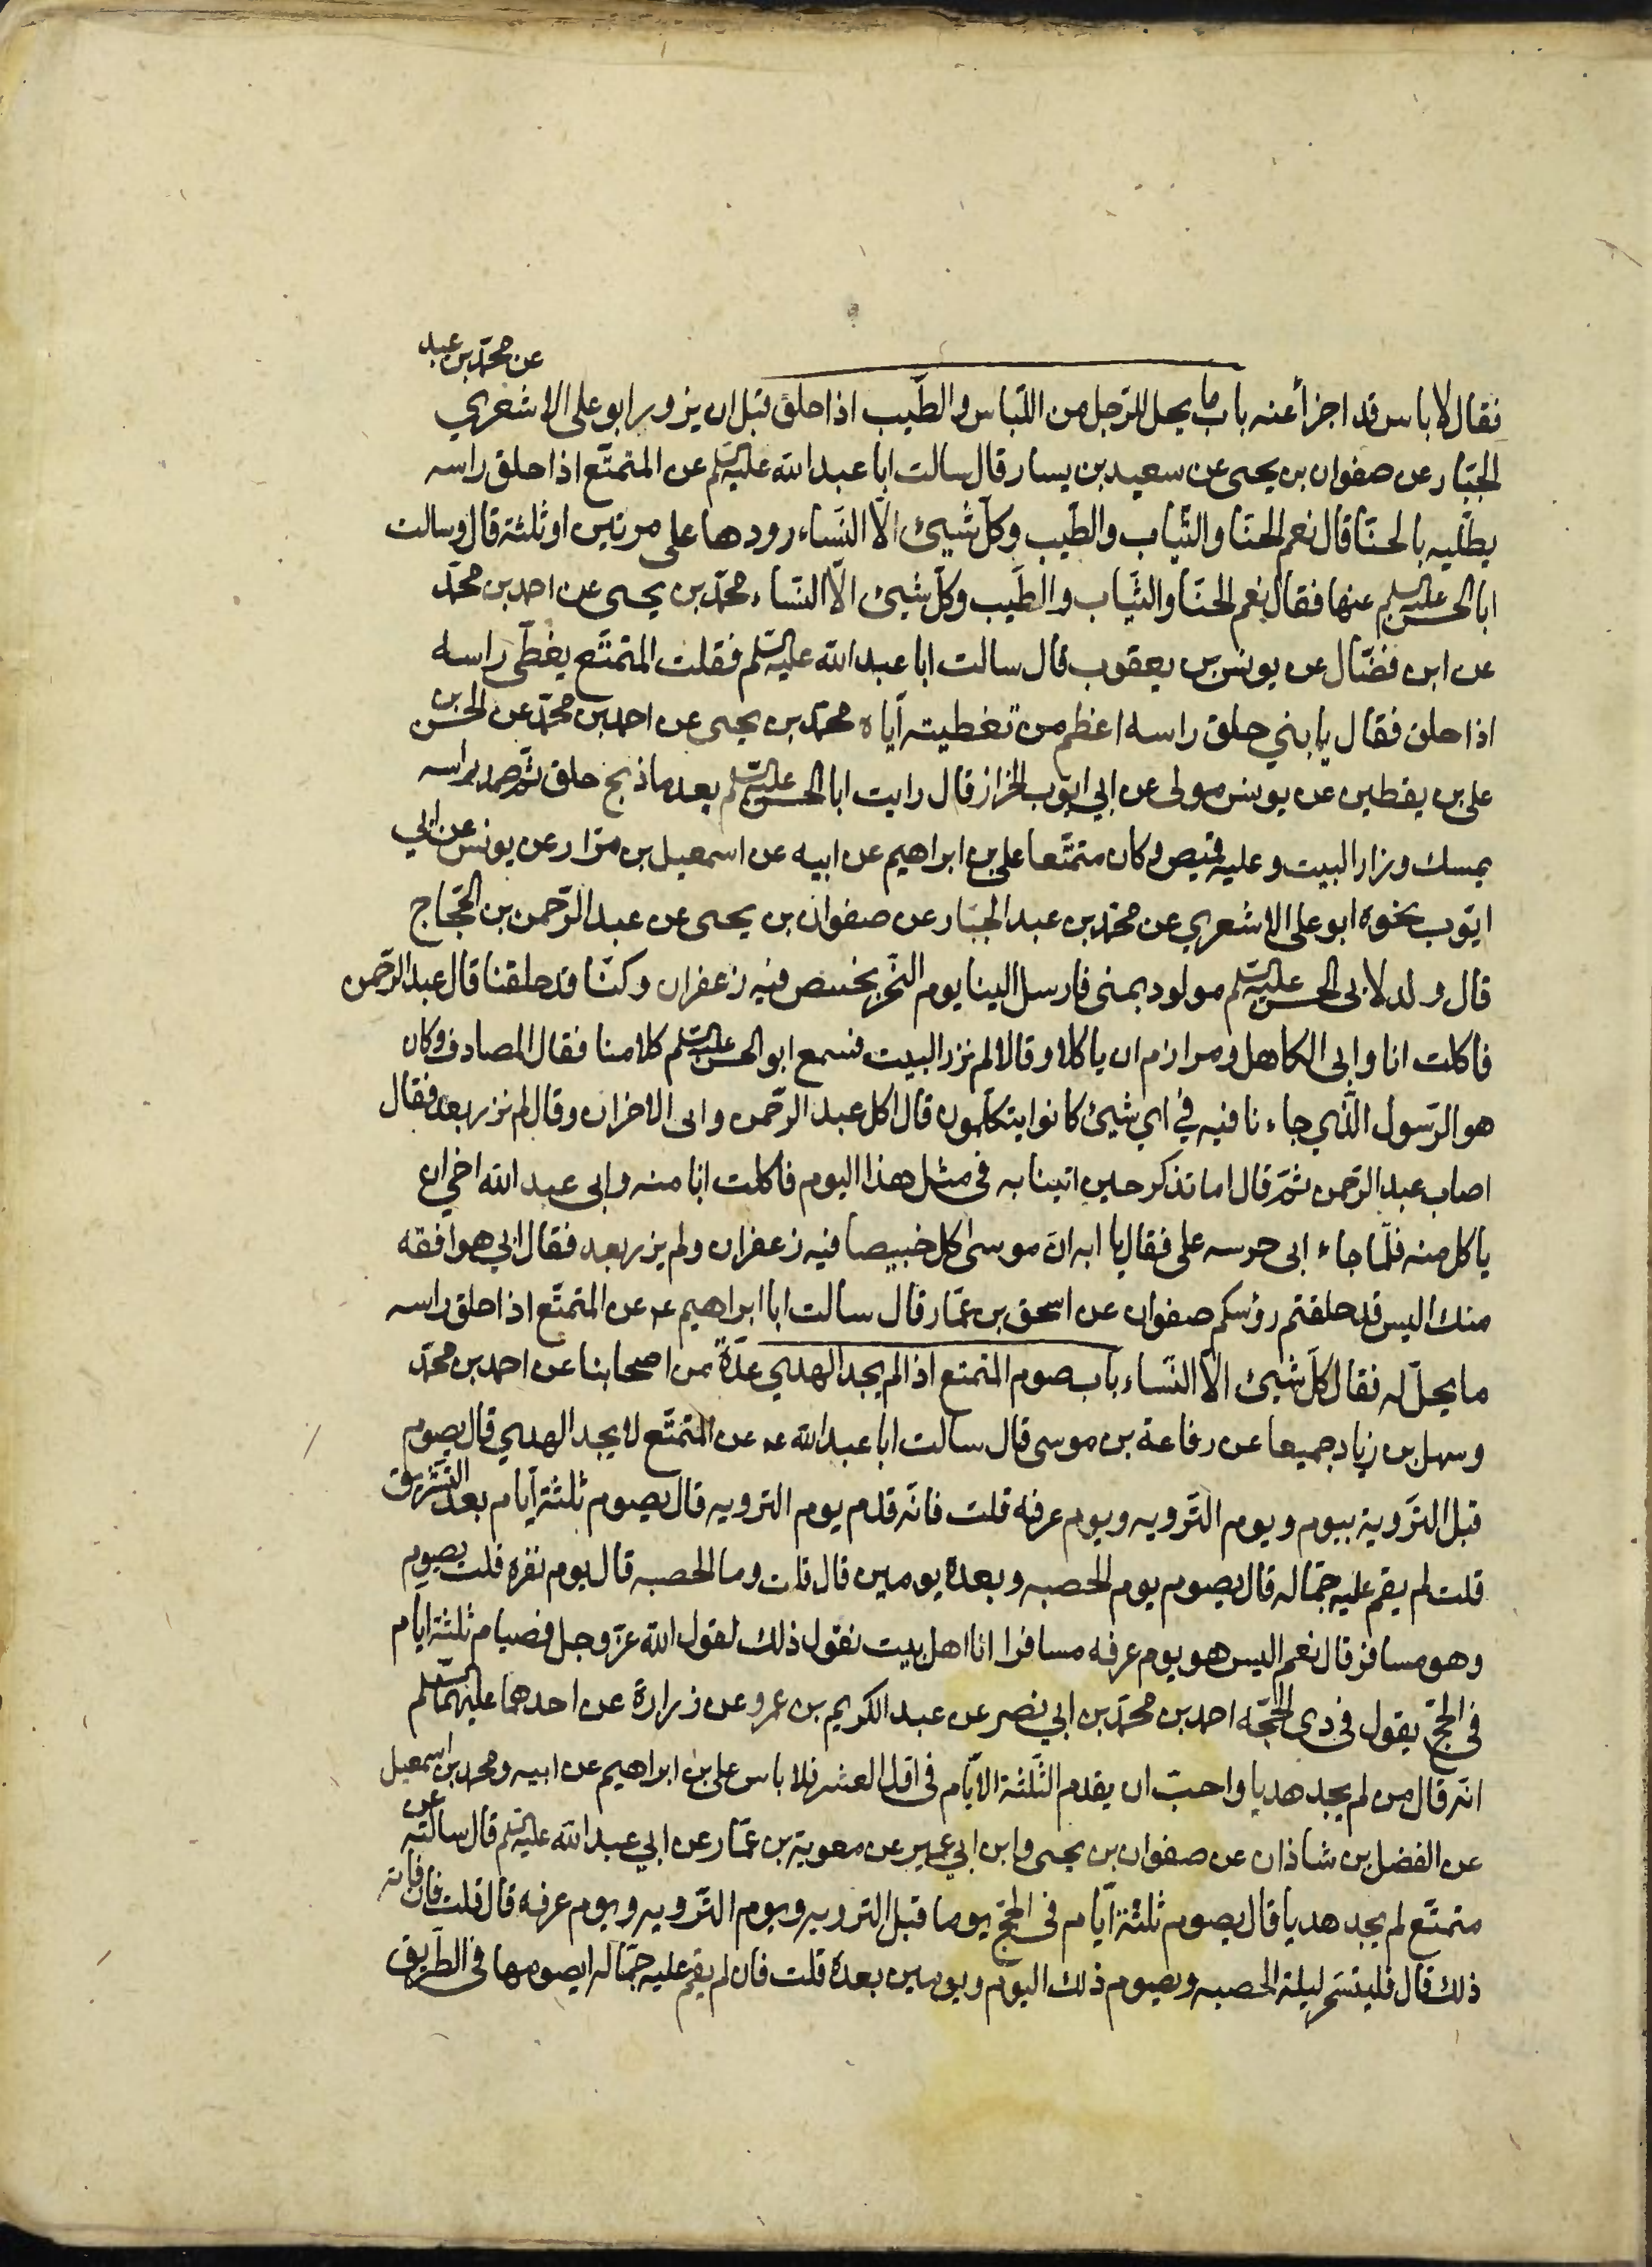 عن محمّد بن عبد
فقال لا باس قد اجزأ عنه باب ما يحل للرّجل من اللّباس والطّيب اذا حلق قبل ان يزور ابو على الاشعري
الجبّار عن صفوان بن يحيى عن سعيد بن يسار قال سالت ابا عبد الله عليه السّلم عن المتمتّع اذا حلق راسه
يطليه بالحنّا قال نعم الحنّا والثّياب والطّيب وكلّ شيئ الّا النّساء رددها على مرتين او ثلثة قال وسالت
ابا الحسن عليه السّلم عنها فقال نعم الحنّا والثّياب والطّيب وكلّ شيئ الّا النّساء محمّد بن يحيى عن احمد بن محمّد
عن ابن فضّال عن يونس بن يعقوب قال سالت ابا عبد الله عليه السّلم فقلت المتمتّع يغطّى راسه
اذا حلق فقال يا بني حلق راسه اعظم من تغطيته ايّاه محمّد بن يحيى عن احمد بن محمّد عن الحسن بن
على بن يقطين عن يونس مولى عن ابي ايّوب الخزاز قال رايت ابا الحسن عليه السّلم بعد ما ذبح حلق ثمّ ضمد راسه
بمسك وزار البيت وعليه قميص وكان متمتّعا على بن ابراهيم عن ابيه عن اسمعيل بن مرّار عن يونس عن ابي
ايّوب نحوه ابو على الاشعري عن محمّد بن عبد الجبّار عن صفوان بن يحيى عن عبد الرّحمن بن الحجّاج
قال ولد لابى الحسن عليه السّلم مولود بمنى فارسل الينا يوم النّحر بخبيص فيه زعفران وكنّا قد حلقنا قال عبد الرّحمن
فاكلت انا وابى الكاهلى ومرازم ان ياكلا وقالا لم نزر البيت فسمع ابو الحسن عليه السّلم كلامنا فقال لمصادف وكان
هو الرّسول الّذي جاءنا فيه في اي شيئ كانوا يتكلّمون قال اكل عبد الرّحمن وابى الاخران وقالا لم نزر بعد فقال
اصاب عبد الرّحمن ثمّ قال اما تذكر حين اتينا به في مثل هذا اليوم فاكلت انا منه وابى عبد الله اخي ان
ياكل منه فلمّا جاء ابى حرسه على فقال يا ابه انّ موسى اكل خبيصا فيه زعفران ولم يزر بعد فقال ابي هو افقه
منك اليس قد حلقتم رؤسكم صفوان عن اسحق بن عمّار قال سالت ابا ابراهيم عه عن المتمتّع اذا حلق راسه
ما يحلّ له فقال كلّ شيئ الّا النّساء باب صوم المتمتع اذا لم يجد الهدي عدّة من اصحابنا عن احمد بن محمّد
وسهل بن زياد جميعا عن رفاعة بن موسى قال سالت ابا عبد الله عه عن المتمتّع لا يجد الهدي قال يصوم
قبل التّروية بيوم ويوم التّرويه ويوم عرفه قلت فانّه قدم يوم الترويه قال يصوم ثلثة ايّام بعد التّشريق
قلت لم يقم عليه جمّاله قال يصوم يوم الحصبه وبعده يومين قال قلت وما الحصبه قال يوم نفره قلت يصوم
وهو مسافر قال نعم اليس هو يوم عرفه مسافرا انا اهل بيت نقول ذلك لقول الله عزّ وجل فصيام ثلثة ايّام
فى الحجّ يقول فى ذى الحجّه احمد بن محمّد بن ابي نصر عن عبد الكريم بن عمرو عن زرارة عن احدهما عليهما السّلم
انّه قال من لم يجد هديا واحبّ ان يقدم الثّلثة الايّام فى اوّل العشر فلا باس على بن ابراهيم عن ابيه ومحمد بن اسمعيل
عن الفضل بن شاذان عن صفوان بن يحيى وابن ابي عمير عن معوية بن عمّار عن ابي عبد الله عليه السّلم قال سالته عن
متمتّع لم يجد هديا قال يصوم ثلثة ايّام فى الحجّ يوما قبل الترويه ويوم التّرويه ويوم عرفه قال قلت فان فاته
ذلك قال فليتسحّر ليلة الحصبه ويصوم ذلك اليوم ويومين بعده قلت فان لم يقم عليه جمّاله ايصومها فى الطّريق